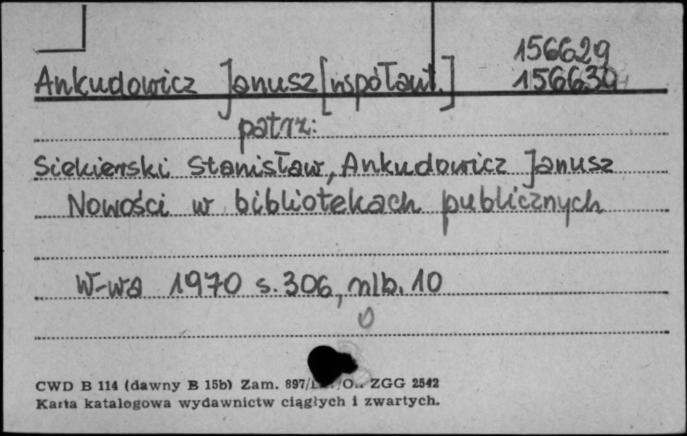 156629
Ankudowicz Janusz [współaut.] 156630
patrz:
Siekierski Stanisław, Ankudowicz Janusz
Nowości w bibliotekach publicznych
W-wa 1970 s. 306, nlb. 10
CWD B 114 (dawny B 15b) Zam. 897/ ZGG 2542
Karta katalogowa wydawnictw ciągłych i zwartych.